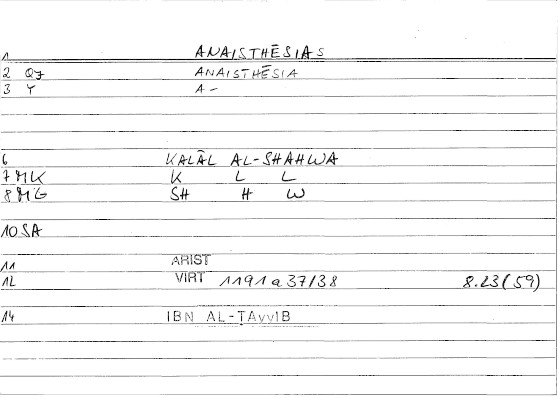 1 ANAISTHĒSIAS
2 QJ ANAISTHĒSIA
3 Y A-
6 KALĀL AL-SHAHWA
7 MK K L L
8 MG SH H W
10 SA
11 ARIST
12 VIRT 1191a37/38 8.23(59)
14 IBN AL-ṬAyyIB